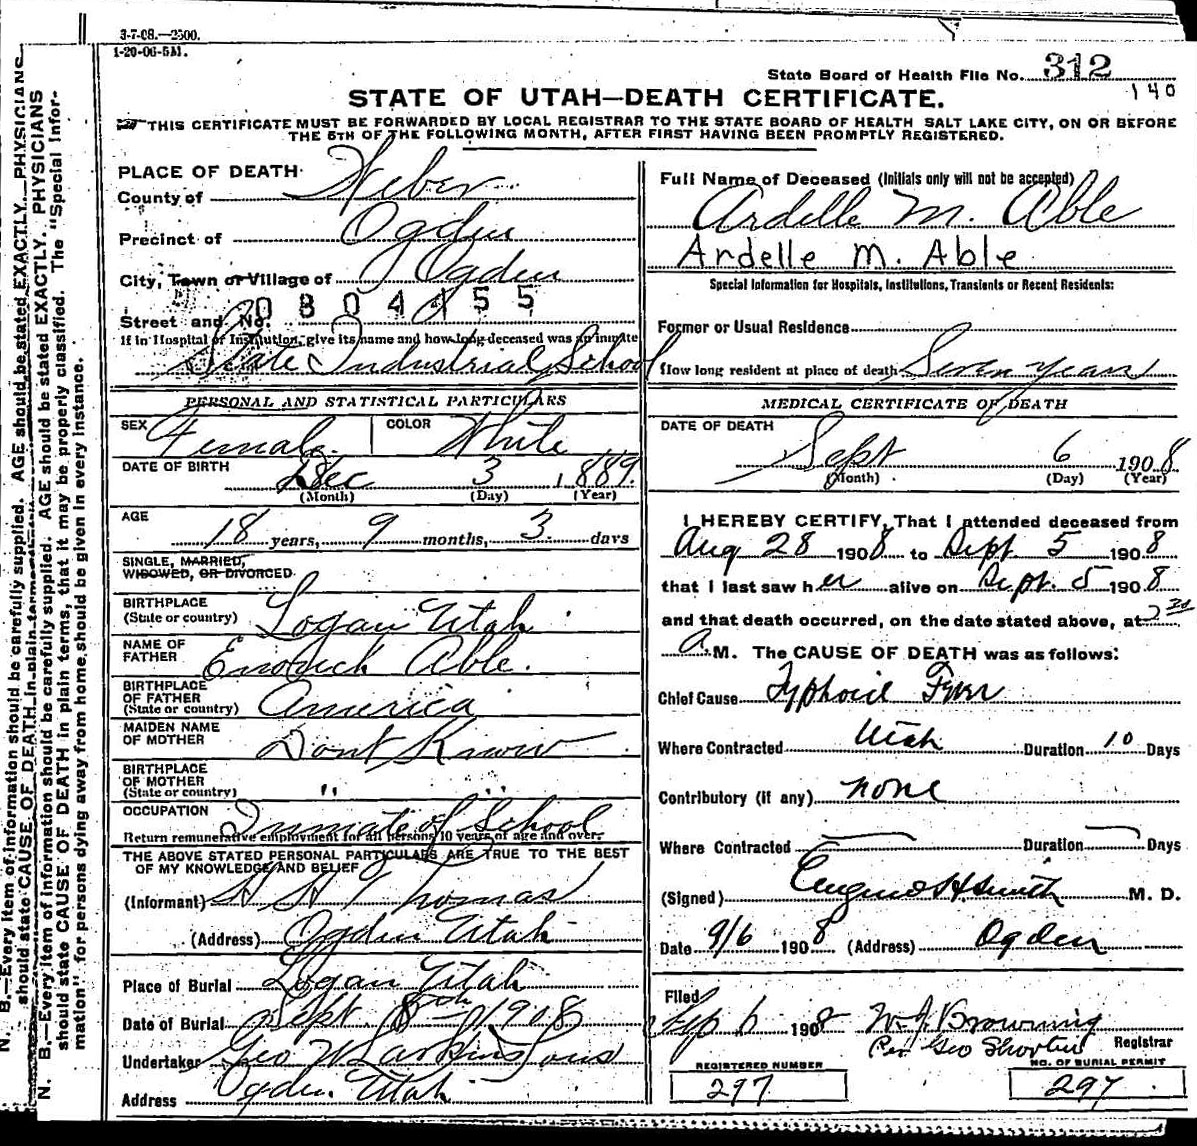 3-7-08.—2500.
1-20-06-5M.
State Board of Health File No. 312
140
STATE OF UTAH—DEATH CERTIFICATE.
THIS CERTIFICATE MUST BE FORWARDED BY LOCAL REGISTRAR TO THE STATE BOARD OF HEALTH SALT LAKE CITY, ON OR BEFORE
THE 5TH OF THE FOLLOWING MONTH, AFTER FIRST HAVING BEEN PROMPTLY REGISTERED.
PLACE OF DEATH
County of Weber
Precinct of Ogden
City, Town or Village of Ogden
0804455
Street and No.
If in Hospital or Institution, give its name and how long deceased was an inmate
State Industrial School
PERSONAL AND STATISTICAL PARTICULARS
SEX Female COLOR White
DATE OF BIRTH
Dec 3 1889
(Month) (Day) (Year)
AGE
18 years, 9 months, 3 days
SINGLE, MARRIED,
WIDOWED, OR DIVORCED
BIRTHPLACE
(State or country) Logan Utah
NAME OF
FATHER Able.
BIRTHPLACE
OF FATHER
(State or country) America
MAIDEN NAME
OF MOTHER Dont Know
BIRTHPLACE
OF MOTHER
(State or country) " "
OCCUPATION Inmate of School
Return remunerative employment for all persons 10 years of age and over.
THE ABOVE STATED PERSONAL PARTICULARS ARE TRUE TO THE BEST
OF MY KNOWLEDGE AND BELIEF
(Informant) H H Thomas
(Address) Ogden Utah
Place of Burial Logan Utah
Date of Burial Sept. 8th 1908
Undertaker Geo W Larkin & Sons
Address Ogden Utah
Full Name of Deceased (Initials only will not be accepted)
Ardelle M. Able
Ardelle M. Able
Special Information for Hospitals, Institutions, Transients or Recent Residents:
Former or Usual Residence
How long resident at place of death Seven years
MEDICAL CERTIFICATE OF DEATH
DATE OF DEATH
Sept 6 1908
(Month) (Day) (Year)
I HEREBY CERTIFY, That I attended deceased from
Aug 28 1908 to Sept. 5 1908
that I last saw her alive on Sept. 5 1908
and that death occurred, on the date stated above, at
A. M. The CAUSE OF DEATH was as follows:
Chief Cause Typhoid Fever
Where Contracted Utah Duration 10 Days
Contributory (if any) none
Where Contracted Duration Days
(Signed) Eugene H. Smith M. D.
Date 9/6 1908 (Address) Ogden
Filed
Sep 6 1908 W. J. Browning
Per Geo Shorten Registrar
REGISTERED NUMBER
297
NO. OF BURIAL PERMIT
297
N. B.—Every item of information should be carefully supplied. AGE should be stated EXACTLY. PHYSICIANS
should state CAUSE OF DEATH in plain terms
N. B.—Every item of information should be carefully supplied. AGE should be stated EXACTLY. PHYSICIANS
should state CAUSE OF DEATH in plain terms, that it may be properly classified. The "Special Infor-
mation" for persons dying away from home should be given in every instance.